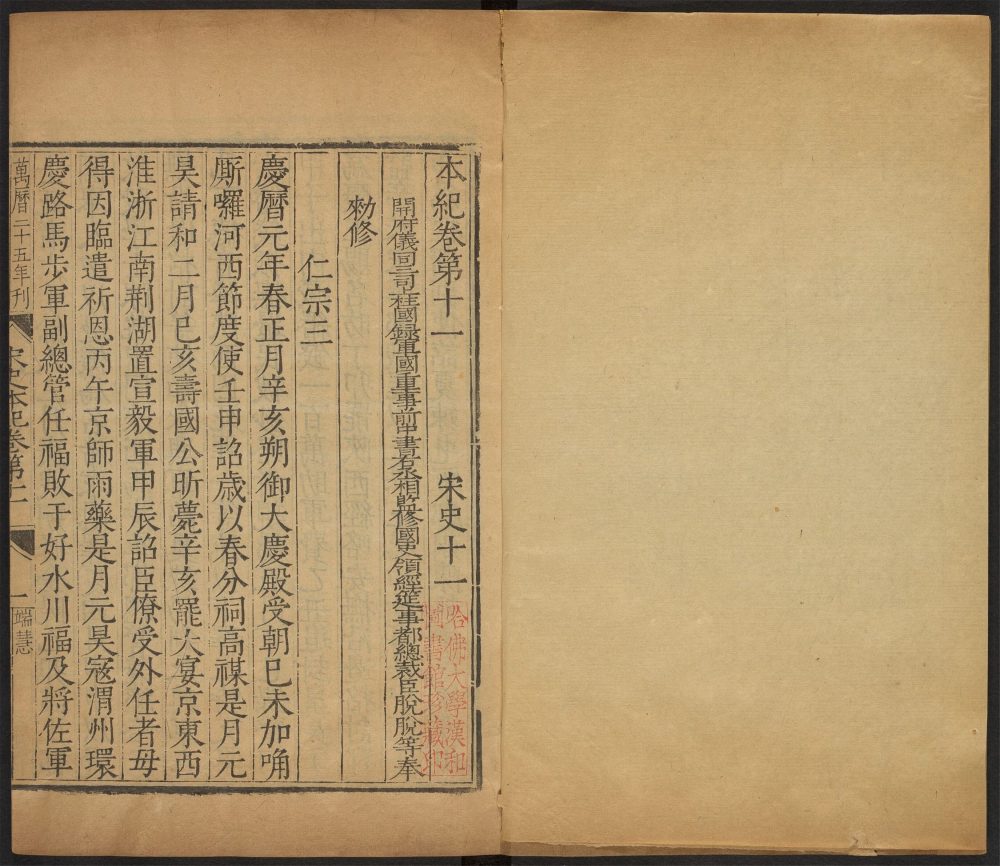 本紀卷第十一 宋史十一
開府儀同三司上柱國錄軍國重事前中書右丞相監修國史領經筵事都總裁臣脫脫等奉
勑修
仁宗三
慶曆元年春正月辛亥朔御大慶殿受朝巳未加唃
厮囉河西節度使壬申詔歲以春分祠高禖是月元
昊請和二月巳亥壽國公昕薨辛亥罷大宴京東西
淮浙江南荆湖置宣毅軍甲辰詔臣僚受外任者毋
得因臨遣祈恩丙午京師雨藥是月元昊寇渭州環
慶路馬步軍副總管任福敗于好水川福及將佐軍
萬曆二十五年刊
宋史本紀卷第十一
一
端慧
哈佛大學漢和
圖書館珍藏印